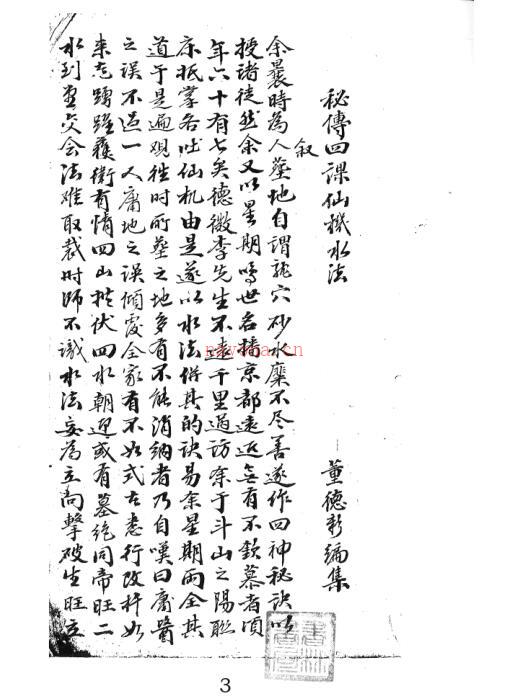 秘傳四課仙機水法
董德彰編集
叙
余曩時為人塟地自謂龍穴砂水靡不尽善遂作四神秘訣以
授諸徒然余又以星期鳴世名播京都遠近無有不欽慕者頃
年六十有七矣德徵李先生不遠千里過訪余于斗山之陽聯
床抵掌各吐仙机由是遂以水法併其的訣易余星期兩全其
道于是遍观徃時所塟之地多有不能消納者乃自嘆曰庸醫
之誤不過一人庸地之誤傾覆全家有不如式者悉行改扦如
来龍踴躍護衛有情四山拱伏四水朝迎或有墓絶同帝旺二
水到堂交会法难取裁时师不識水法妄為立向擊破生旺立
nayona.cn
3